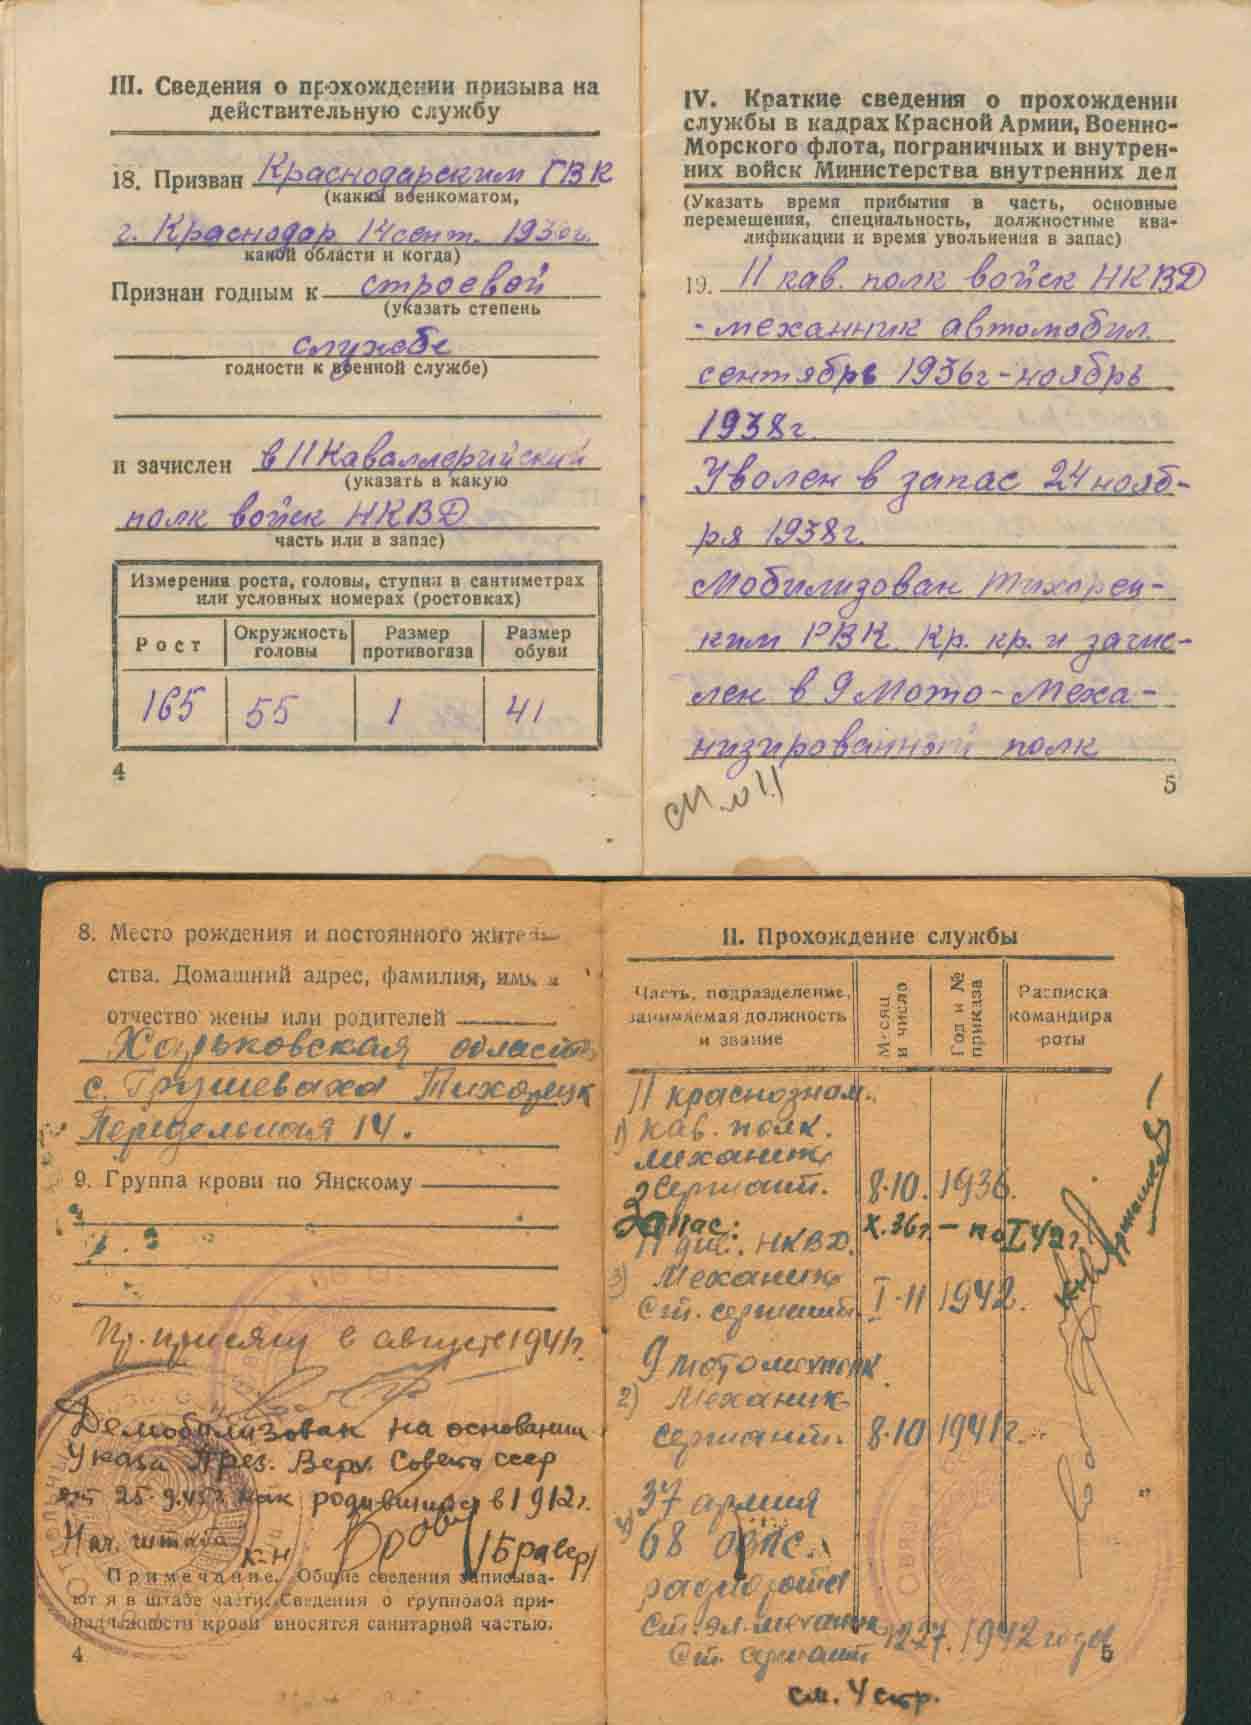 III. Сведения о прохождении призыва на
действительную службу
18. Призван Краснодарским ГВК
(каким военкоматом,
г. Краснодар 14 сент. 1936г.
какой области и когда)
Признан годным к строевой
(указать степень
службе
годности к военной службе)
и зачислен в 11 Каваллерийский
(указать в какую
полк войск НКВД
часть или в запас)
Измерения роста, головы, ступни в сантиметрах
или условных номерах (ростовках)
Рост Окружность головы Размер противогаза Размер обуви
165 55 1 41
4
IV. Краткие сведения о прохождении
службы в кадрах Красной Армии, Военно-
Морского флота, пограничных и внутрен-
них войск Министерства внутренних дел
(Указать время прибытия в часть, основные
перемещения, специальность, должностные ква-
лификации и время увольнения в запас)
19. 11 кав. полк войск НКВД
- механник автомобил.
сентябрь 1936г - ноябрь
1938г.
Уволен в запас 24 нояб-
ря 1938г.
Мобилизован Тихорец-
ким РВК Кр. кр. и зачис-
лен в 9 Мото-Меха-
низированный полк
5
8. Место рождения и постоянного житель-
ства. Домашний адрес, фамилия, имя и
отчество жены или родителей
Харьковская область
с. Грушеваха Тихорецк
14.
9. Группа крови по Янскому
Пр. присягу в августе 1941г.
Демобилизован на основании
Указа През. Верх. Совета СССР
от 25.9.45г как родившийся в 1912г.
Нач. штаба
к-н /Бравер/
Примечание. Общие сведения записыва-
ются в штабе части. Сведения о групповой при-
надлежности крови вносятся санитарной частью.
4
II. Прохождение службы
Часть, подразделение, занимаемая должность и звание
Месяц и число
Год и № приказа
Расписка командира роты
11 краснознам.
1) кав. полк.
механик
Сержант. 8.10. 1936.
Запас: X.36г. - по I 42г
11 див. НКВД.
3) Механик
Ст. сержант. I-11 1942.
9 мотомехполк
2) Механик
сержант. 8.10 1941г.
37 армия
4) 68 ОПС.
радиорота
Ст. эл. механик
Ст. сержант 12.27. 1942 года
5
см. 4 стр.